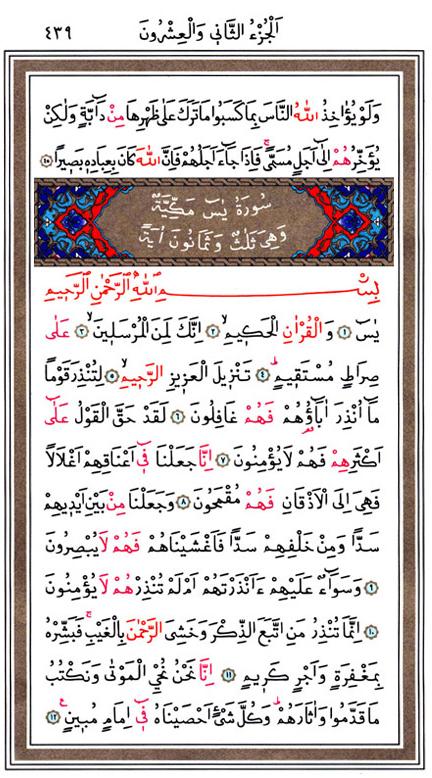 اَلْجُزْءُ الثَّانٖي وَالْعِشْرُونَ ٤٣٩
وَلَوْ يُؤَاخِذُ اللّٰهُ النَّاسَ بِمَا كَسَبُوا مَا تَرَكَ عَلٰى ظَهْرِهَا مِنْ دَٓابَّةٍ وَلٰكِنْ
يُؤَخِّرُهُمْ اِلٰٓى اَجَلٍ مُسَمًّىۚ فَاِذَا جَٓاءَ اَجَلُهُمْ فَاِنَّ اللّٰهَ كَانَ بِعِبَادِهٖ بَصٖيرًا ﴿٤٥﴾
سُورَةُ يٰسٓ مَكِّيَّةٌ
وَهِيَ ثَلٰثٌ وَثَمَانُونَ اٰيَةً
بِسْمِ اللّٰهِ الرَّحْمٰنِ الرَّحٖيمِ
يٰسٓ ﴿١﴾ وَالْقُرْاٰنِ الْحَكٖيمِۙ ﴿٢﴾ اِنَّكَ لَمِنَ الْمُرْسَلٖينَۙ ﴿٣﴾ عَلٰى
صِرَاطٍ مُسْتَقٖيمٍۜ ﴿٤﴾ تَنْزٖيلَ الْعَزٖيزِ الرَّحٖيمِۙ ﴿٥﴾ لِتُنْذِرَ قَوْمًا
مَٓا اُنْذِرَ اٰبَٓاؤُ۬هُمْ فَهُمْ غَافِلُونَ ﴿٦﴾ لَقَدْ حَقَّ الْقَوْلُ عَلٰٓى
اَكْثَرِهِمْ فَهُمْ لَا يُؤْمِنُونَ ﴿٧﴾ اِنَّا جَعَلْنَا فٖٓي اَعْنَاقِهِمْ اَغْلَالًا
فَهِيَ اِلَى الْاَذْقَانِ فَهُمْ مُقْمَحُونَ ﴿٨﴾ وَجَعَلْنَا مِنْ بَيْنِ اَيْدٖيهِمْ
سَدًّا وَمِنْ خَلْفِهِمْ سَدًّا فَاَغْشَيْنَاهُمْ فَهُمْ لَا يُبْصِرُونَ
﴿٩﴾ وَسَوَٓاءٌ عَلَيْهِمْ ءَاَنْذَرْتَهُمْ اَمْ لَمْ تُنْذِرْهُمْ لَا يُؤْمِنُونَ
﴿١٠﴾ اِنَّمَا تُنْذِرُ مَنِ اتَّبَعَ الذِّكْرَ وَخَشِيَ الرَّحْمٰنَ بِالْغَيْبِۚ فَبَشِّرْهُ
بِمَغْفِرَةٍ وَاَجْرٍ كَرٖيمٍ ﴿١١﴾ اِنَّا نَحْنُ نُحْيِ الْمَوْتٰى وَنَكْتُبُ
مَا قَدَّمُوا وَاٰثَارَهُمْۜ وَكُلَّ شَيْءٍ اَحْصَيْنَاهُ فٖٓي اِمَامٍ مُبٖينٍ۟ ﴿١٢﴾